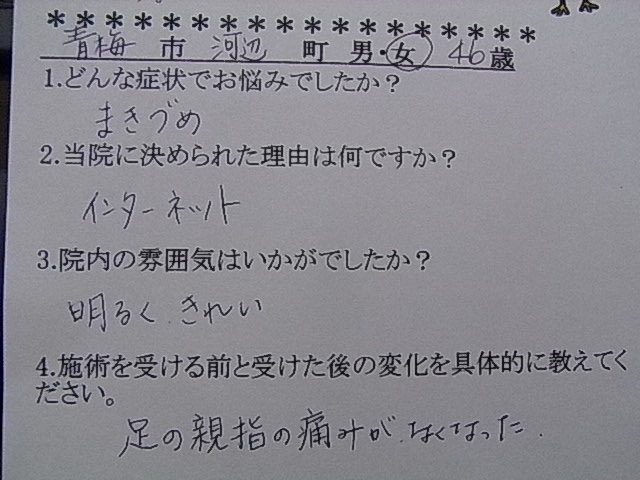 ******************
青梅 市 河辺 町 男・女 46歳
1.どんな症状でお悩みでしたか？
まきづめ
2.当院に決められた理由は何ですか？
インターネット
3.院内の雰囲気はいかがでしたか？
明るく、きれい
4.施術を受ける前と受けた後の変化を具体的に教えてく
ださい。
足の親指の痛みが、なくなった.